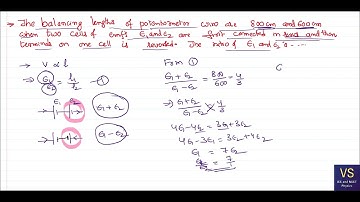 → The balancing lengths of potentiometer wire are 800cm and 600cm
when two cells of emfs E₁ and E₂ are first connected in and then
terminals on one cell is reversed. The ratio of E₁ and E₂ is -----
→ V ∝ l
E₁/E₂ = l₁/l₂ - ①
E₁ E₂
E₁+E₂
E₁-E₂
From ①
E₁+E₂/E₁-E₂ = 800/600 = 4/3
⇒ E₁+E₂/E₁-E₂ 4/3
4E₁-4E₂ = 3E₁+3E₂
4E₁-3E₁ = 3E₂+4E₂
E₁ = 7E₂
E₁/E₂ = 7/1
VS
IEE and NEET
Physics